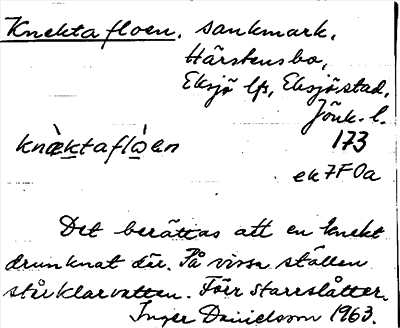 Knektafloen, sankmark,
Hårstensbo,
Eksjö lfs, Eksjö stad,
Jönk. l.
173
knæ̀ktaflò̱en
ek 7F0a
Det berättas att en knekt
drunknat där. På vissa ställen
står klarvatten. Förr starrslåtter.
Inger Danielsson 1963.